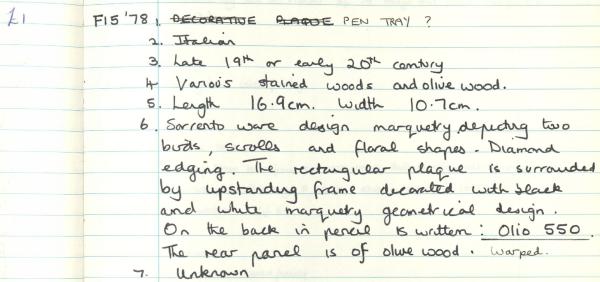 £1 F15 '78 1. DECORATIVE PLAQUE PEN TRAY ?
2. Italian
3. Late 19th or early 20th century
4 Varoiis stained woods and olive wood.
5. Length 16.9cm. Width 10.7cm.
6. Sorrento ware design marquetry depicting two
birds, scrolls and floral shapes. Diamond
edging. The rectangular plaque is surrounded
by upstanding frame decorated with black
and white marquetry geometrical design.
On the back in pencil is written : Olio 550.
The rear panel is of olive wood. Warped.
7. Unknown